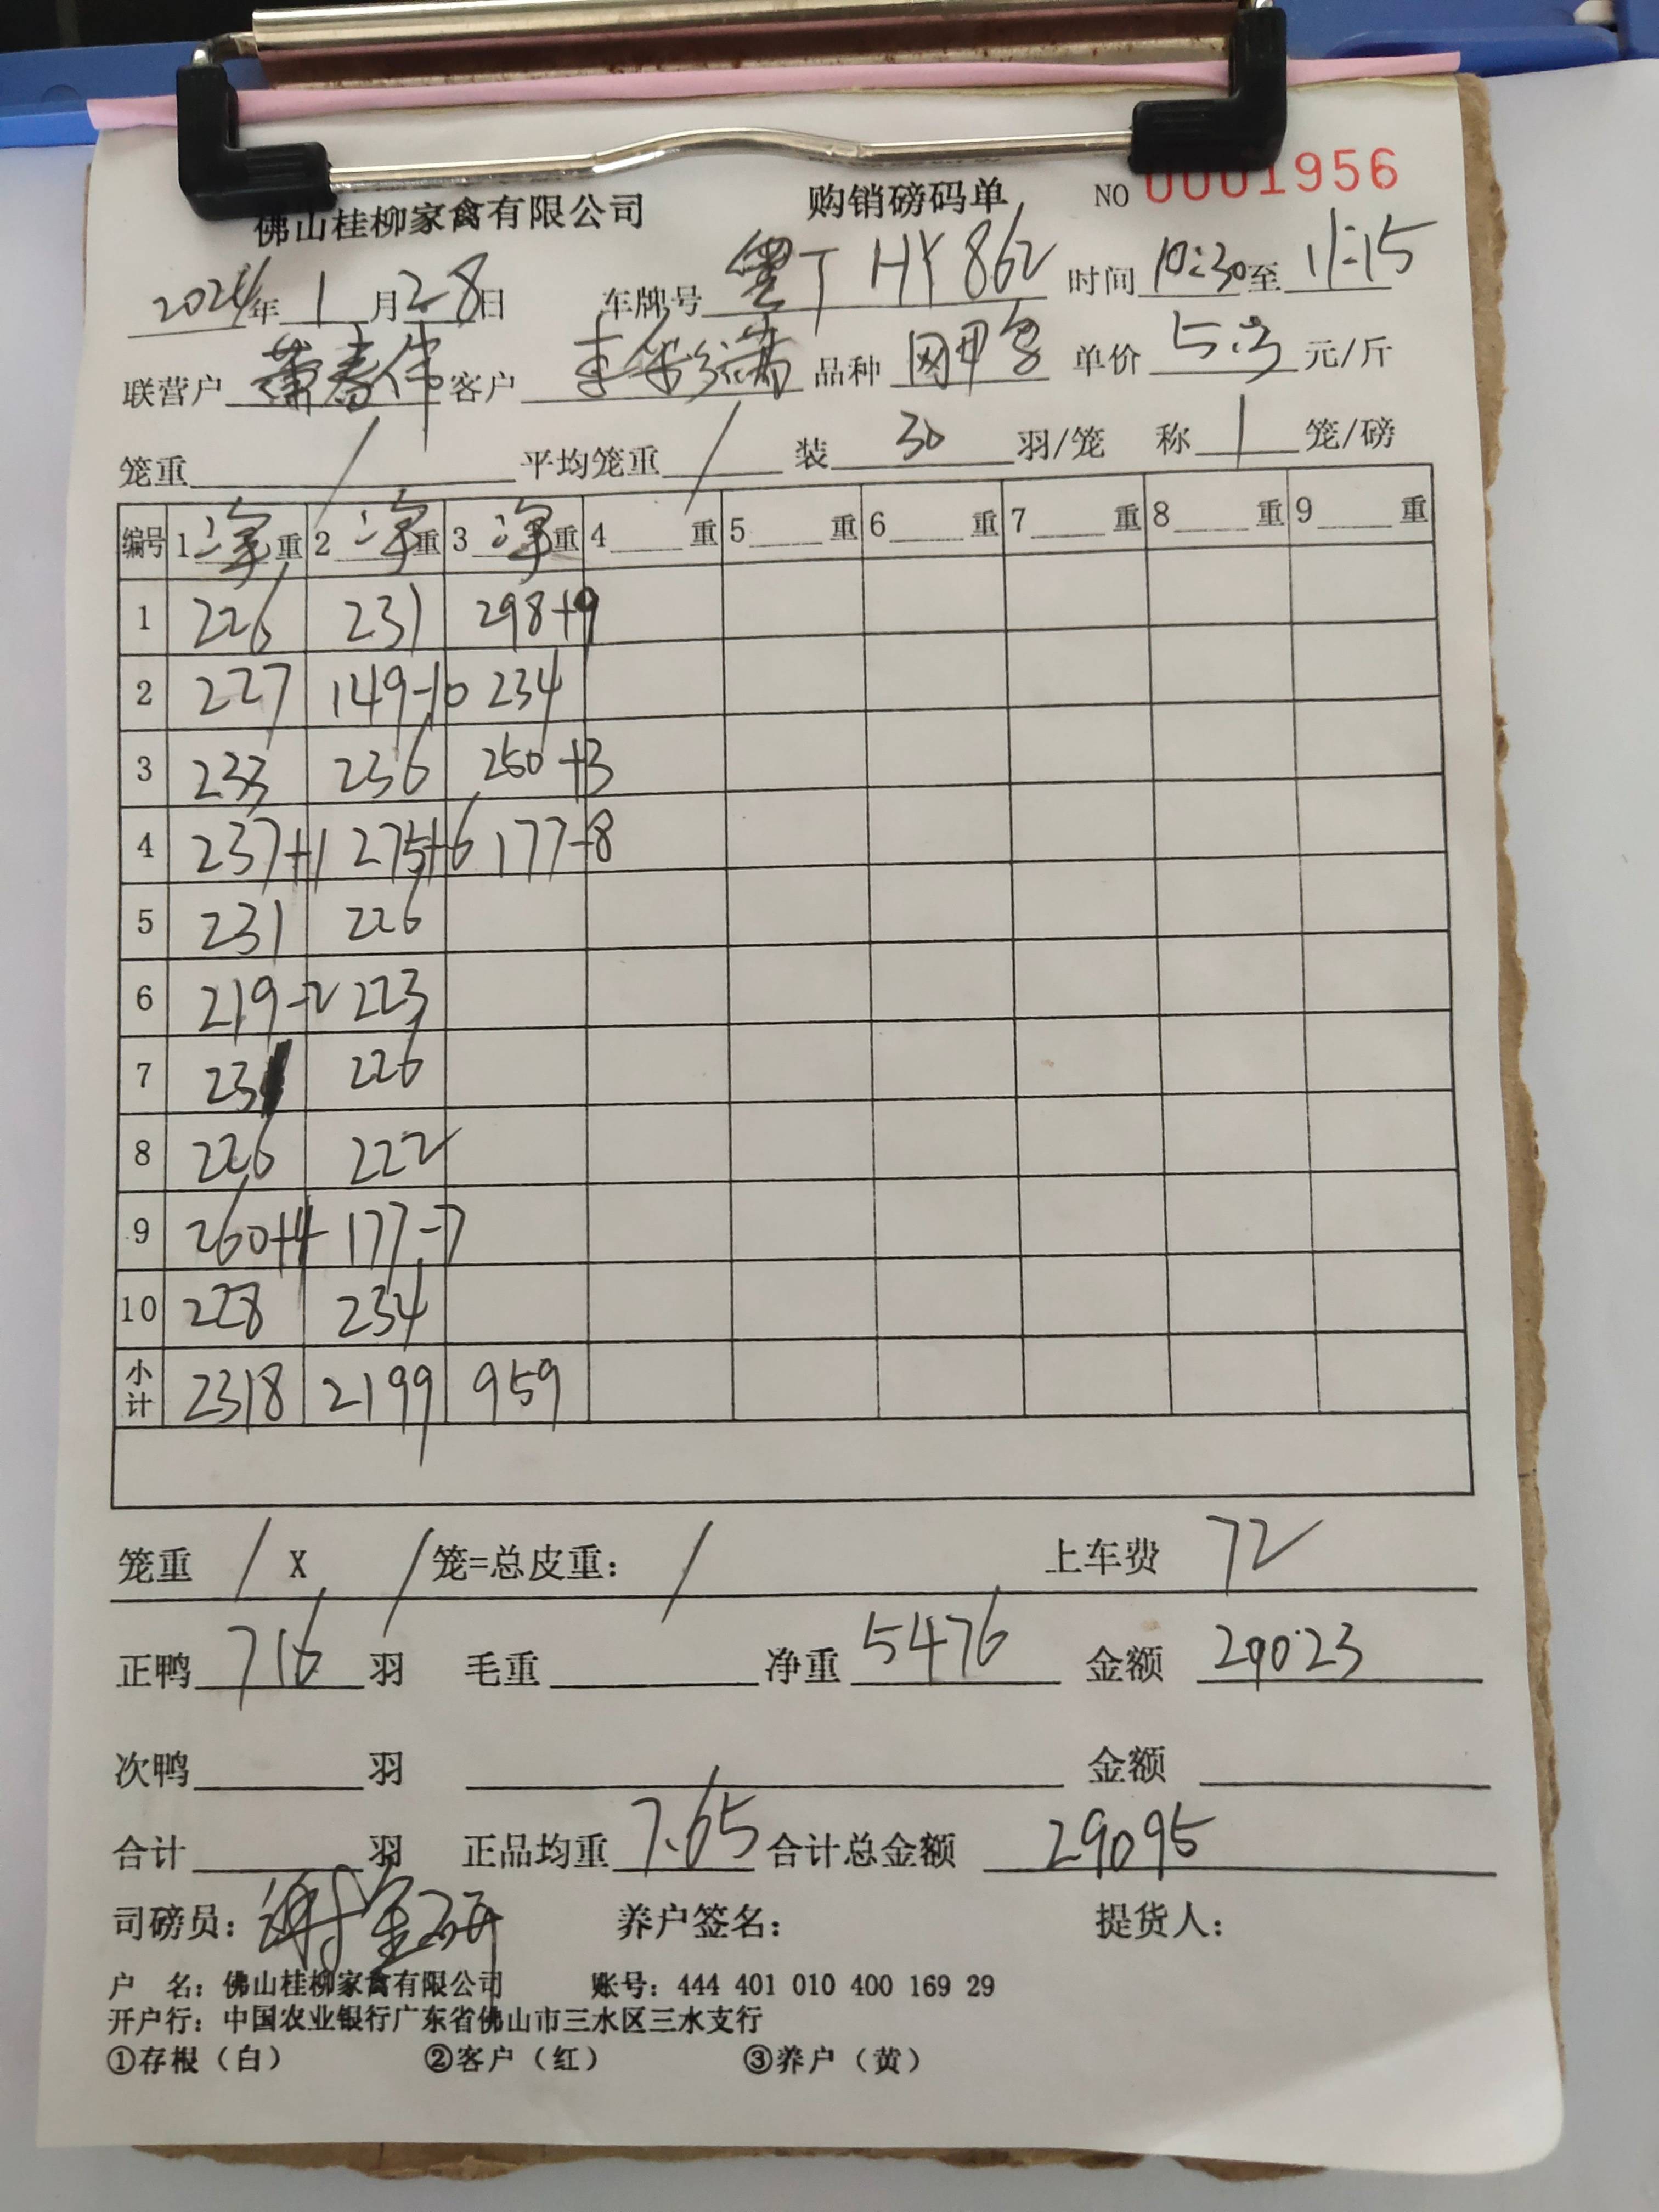 佛山桂柳家禽有限公司 购销磅码单 NO 0001956
2024年 1 月 28 日 车牌号 粤T HY862 时间 10:30 至 11:15
联营户 萧春伟 客户 李彩满 品种 单价 5.3 元/斤
笼重 / 平均笼重 / 装 30 羽/笼 称 1 笼/磅
编号 1 净 重 2 净 重 3 净 重 4 重 5 重 6 重 7 重 8 重 9 重
1 226 231 298+9
2 227 149-10 234
3 233 236 250+3
4 237+1 275+6 177-8
5 231 226
6 219-2 223
7 231 226
8 226 222
9 260+4 177-7
10 228 234
小计 2318 2199 959
笼重 / X / 笼=总皮重: / 上车费 72
正鸭 716 羽 毛重 净重 5476 金额 29023
次鸭 羽 金额
合计 羽 正品均重 7.65 合计总金额 29095
司磅员: 养户签名: 提货人:
户 名: 佛山桂柳家禽有限公司 账号: 444 401 010 400 169 29
开户行: 中国农业银行广东省佛山市三水区三水支行
①存根（白） ②客户（红） ③养户（黄）